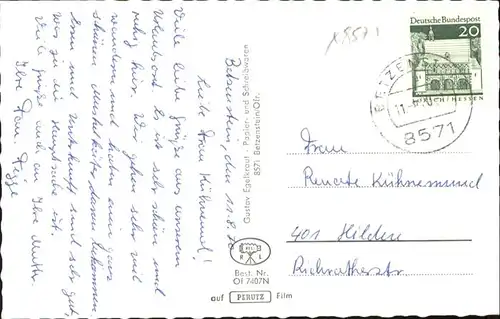 Betzenstein, den 11.8.70
Liebe Frau Kühnemund!
Viele liebe Grüße aus unserem
Urlaubsort. Es ist sehr schön und
ruhig hier. Wir gehen sehr viel
wandern und haben ein ganz
schönes
Essen und Unterkunft sind sehr gut,
was ja die Hauptsache ist.
Viele Grüße und an Ihre Mutter.
Ihre Fam.
Gustav Egelkraut - Papier- und Schreibwaren
8571 Betzenstein/Ofr.
Best. Nr.
Of 7407N
auf PERUTZ Film
8571
Deutsche Bundespost
20
LORSCH/HESSEN
BETZENSTE
8571
Frau
Renate Kühnemund
401 Hilden
Richratherstr.